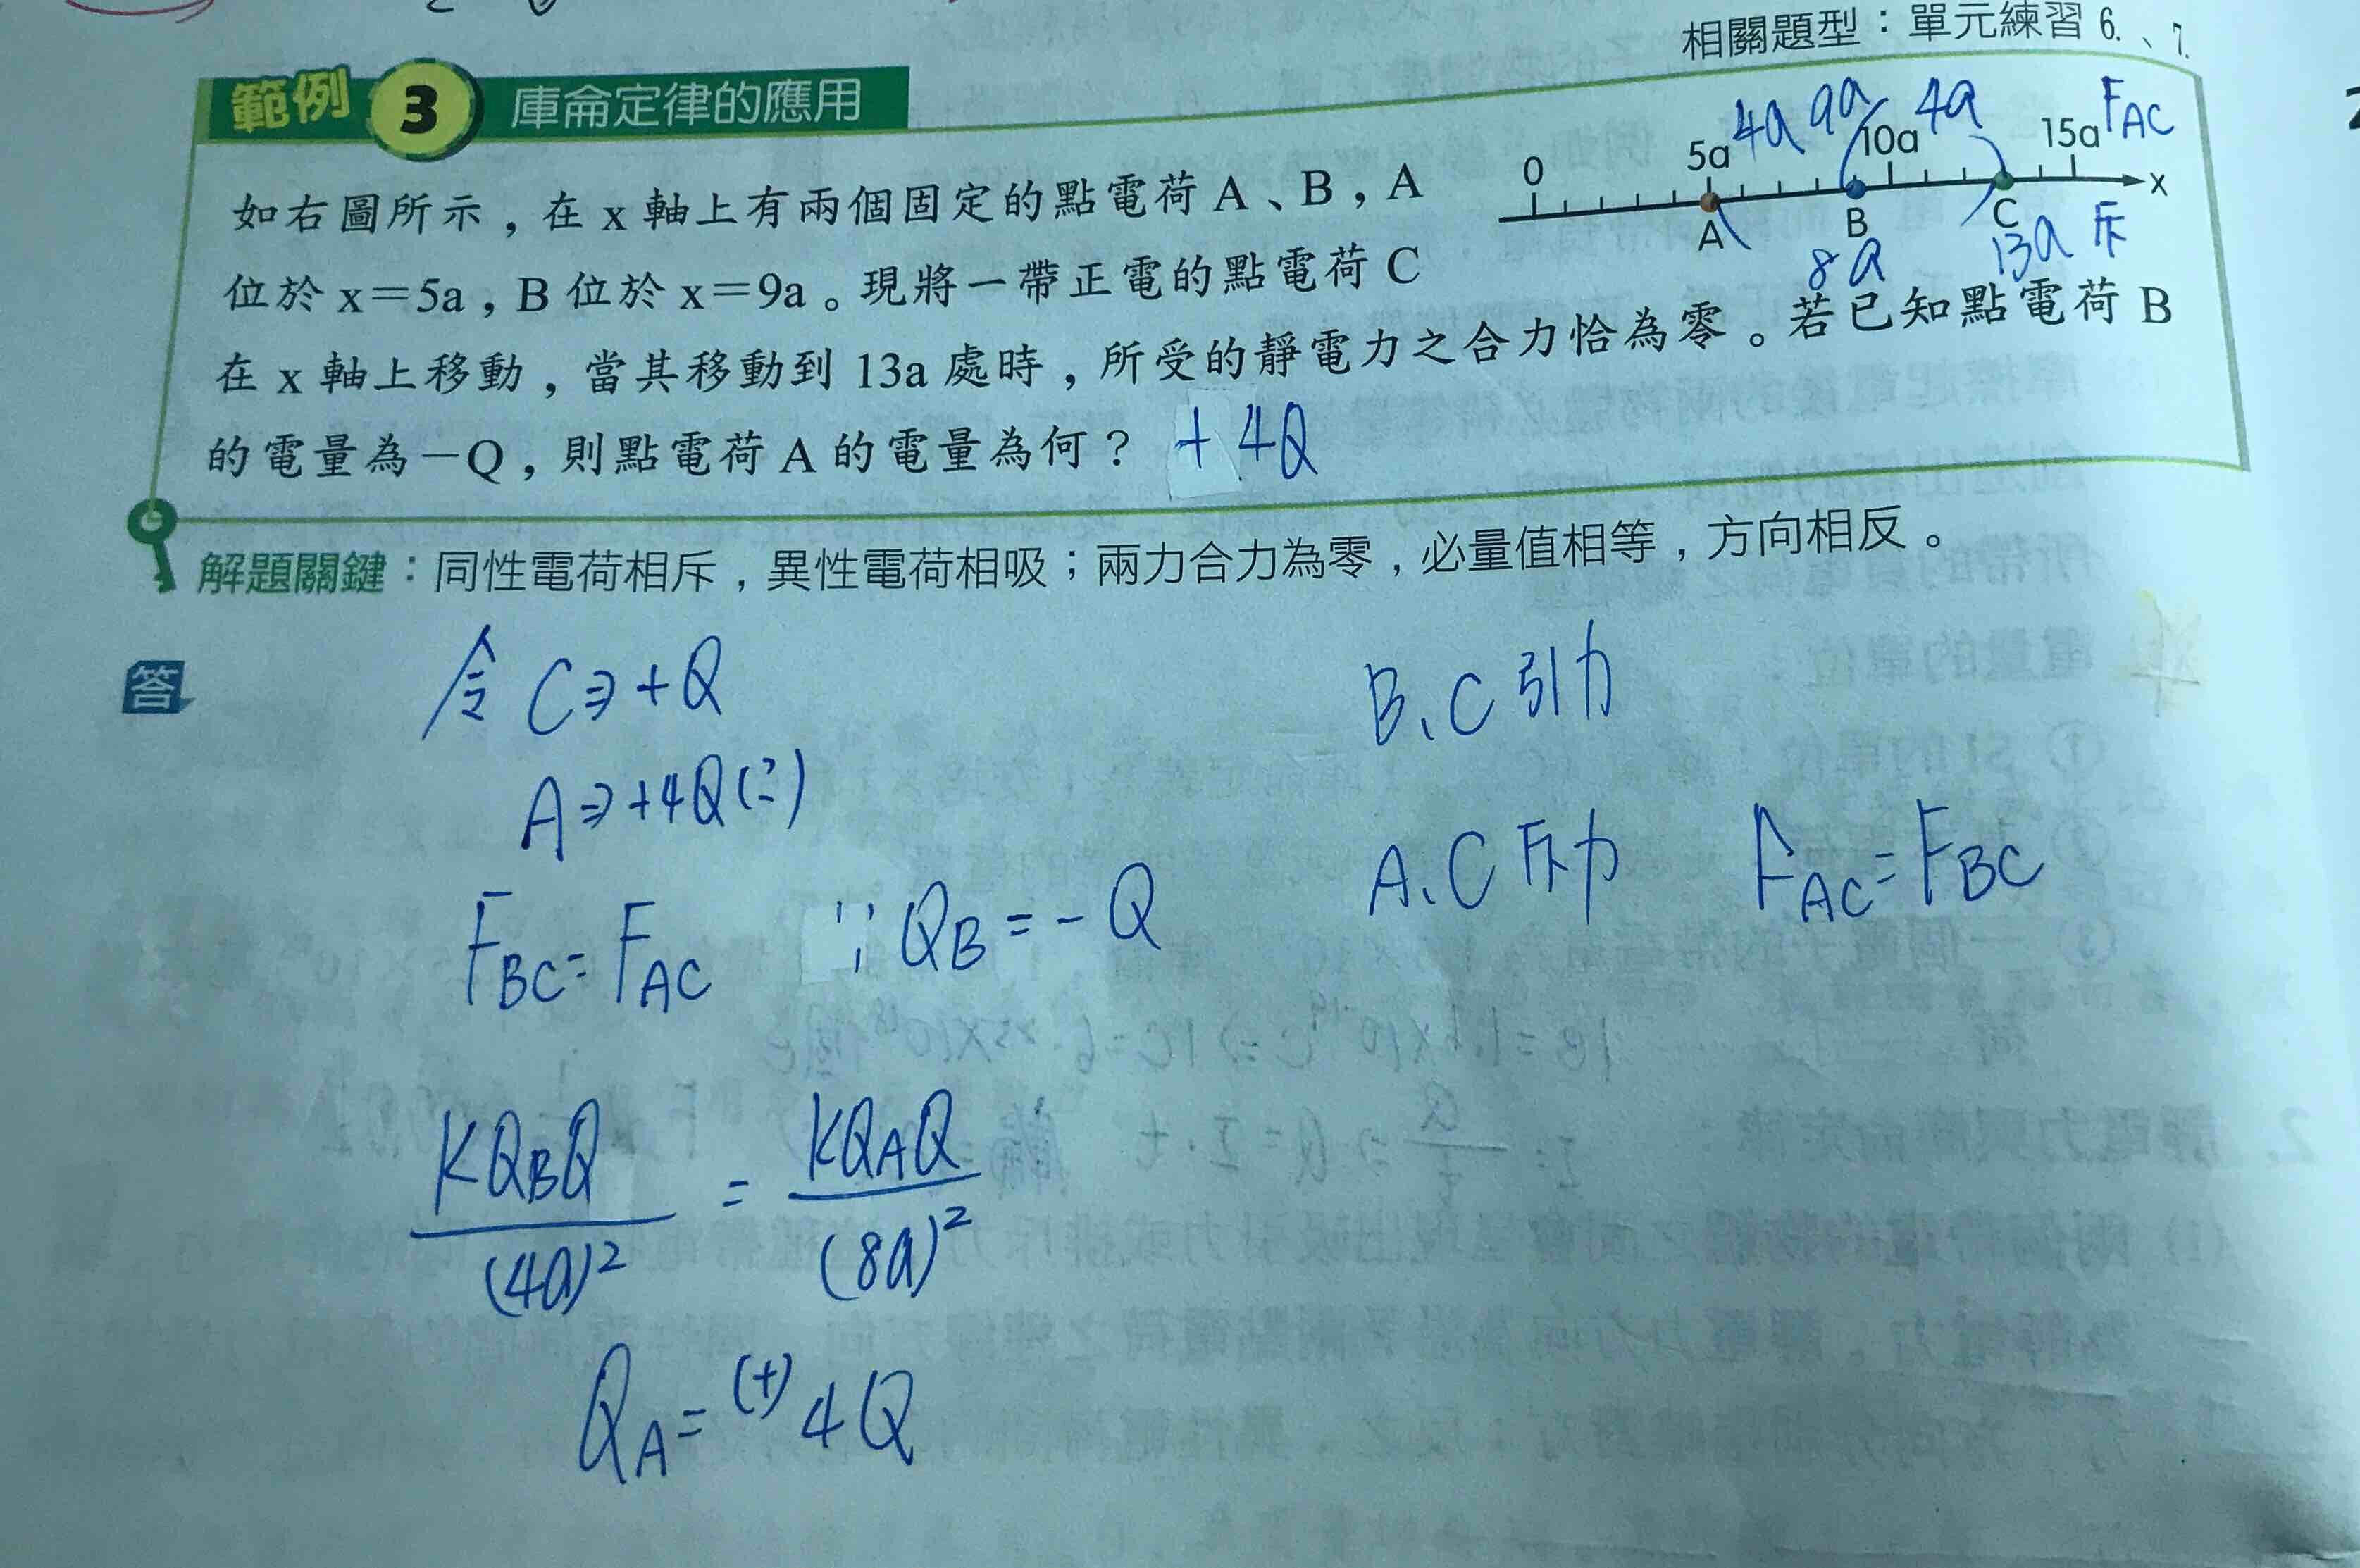 相關題型：單元練習 6.、7.
範例 3 庫侖定律的應用
如右圖所示，在 x 軸上有兩個固定的點電荷 A、B，A
位於 x＝5a，B 位於 x＝9a。現將一帶正電的點電荷 C
在 x 軸上移動，當其移動到 13a 處時，所受的靜電力之合力恰為零。若已知點電荷 B
的電量為－Q，則點電荷 A 的電量為何？ +4Q
0 5a 10a 15a x
A B C
4a 9a 4a F_AC
8a 13a 斥
解題關鍵：同性電荷相斥，異性電荷相吸；兩力合力為零，必量值相等，方向相反。
答
令 C⇒+Q
B、C 引力
A⇒+4Q(?)
A、C 斥力 F_AC=F_BC
F_BC=F_AC ∵Q_B=-Q
KQ_BQ/(4a)² = KQ_AQ/(8a)²
Q_A=(+)4Q